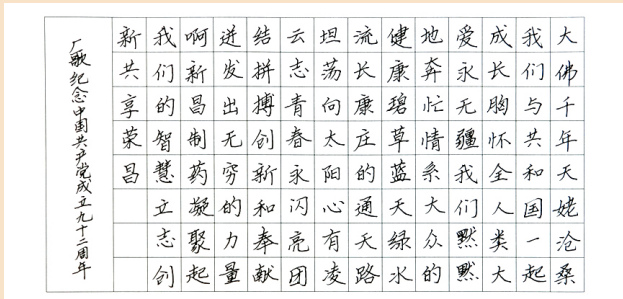 大佛千年天姥沧桑
我们与共和国一起
成长胸怀全人类大
爱永无疆我们默默
地奔忙情系大众的
健康碧草蓝天绿水
流长康庄的通天路
坦荡向太阳心有凌
云志青春永闪亮团
结拼搏创新和奉献
迸发出无穷的力量
啊新昌制药凝聚起
我们的智慧立志创
新共享荣昌
厂歌纪念中国共产党成立九十二周年